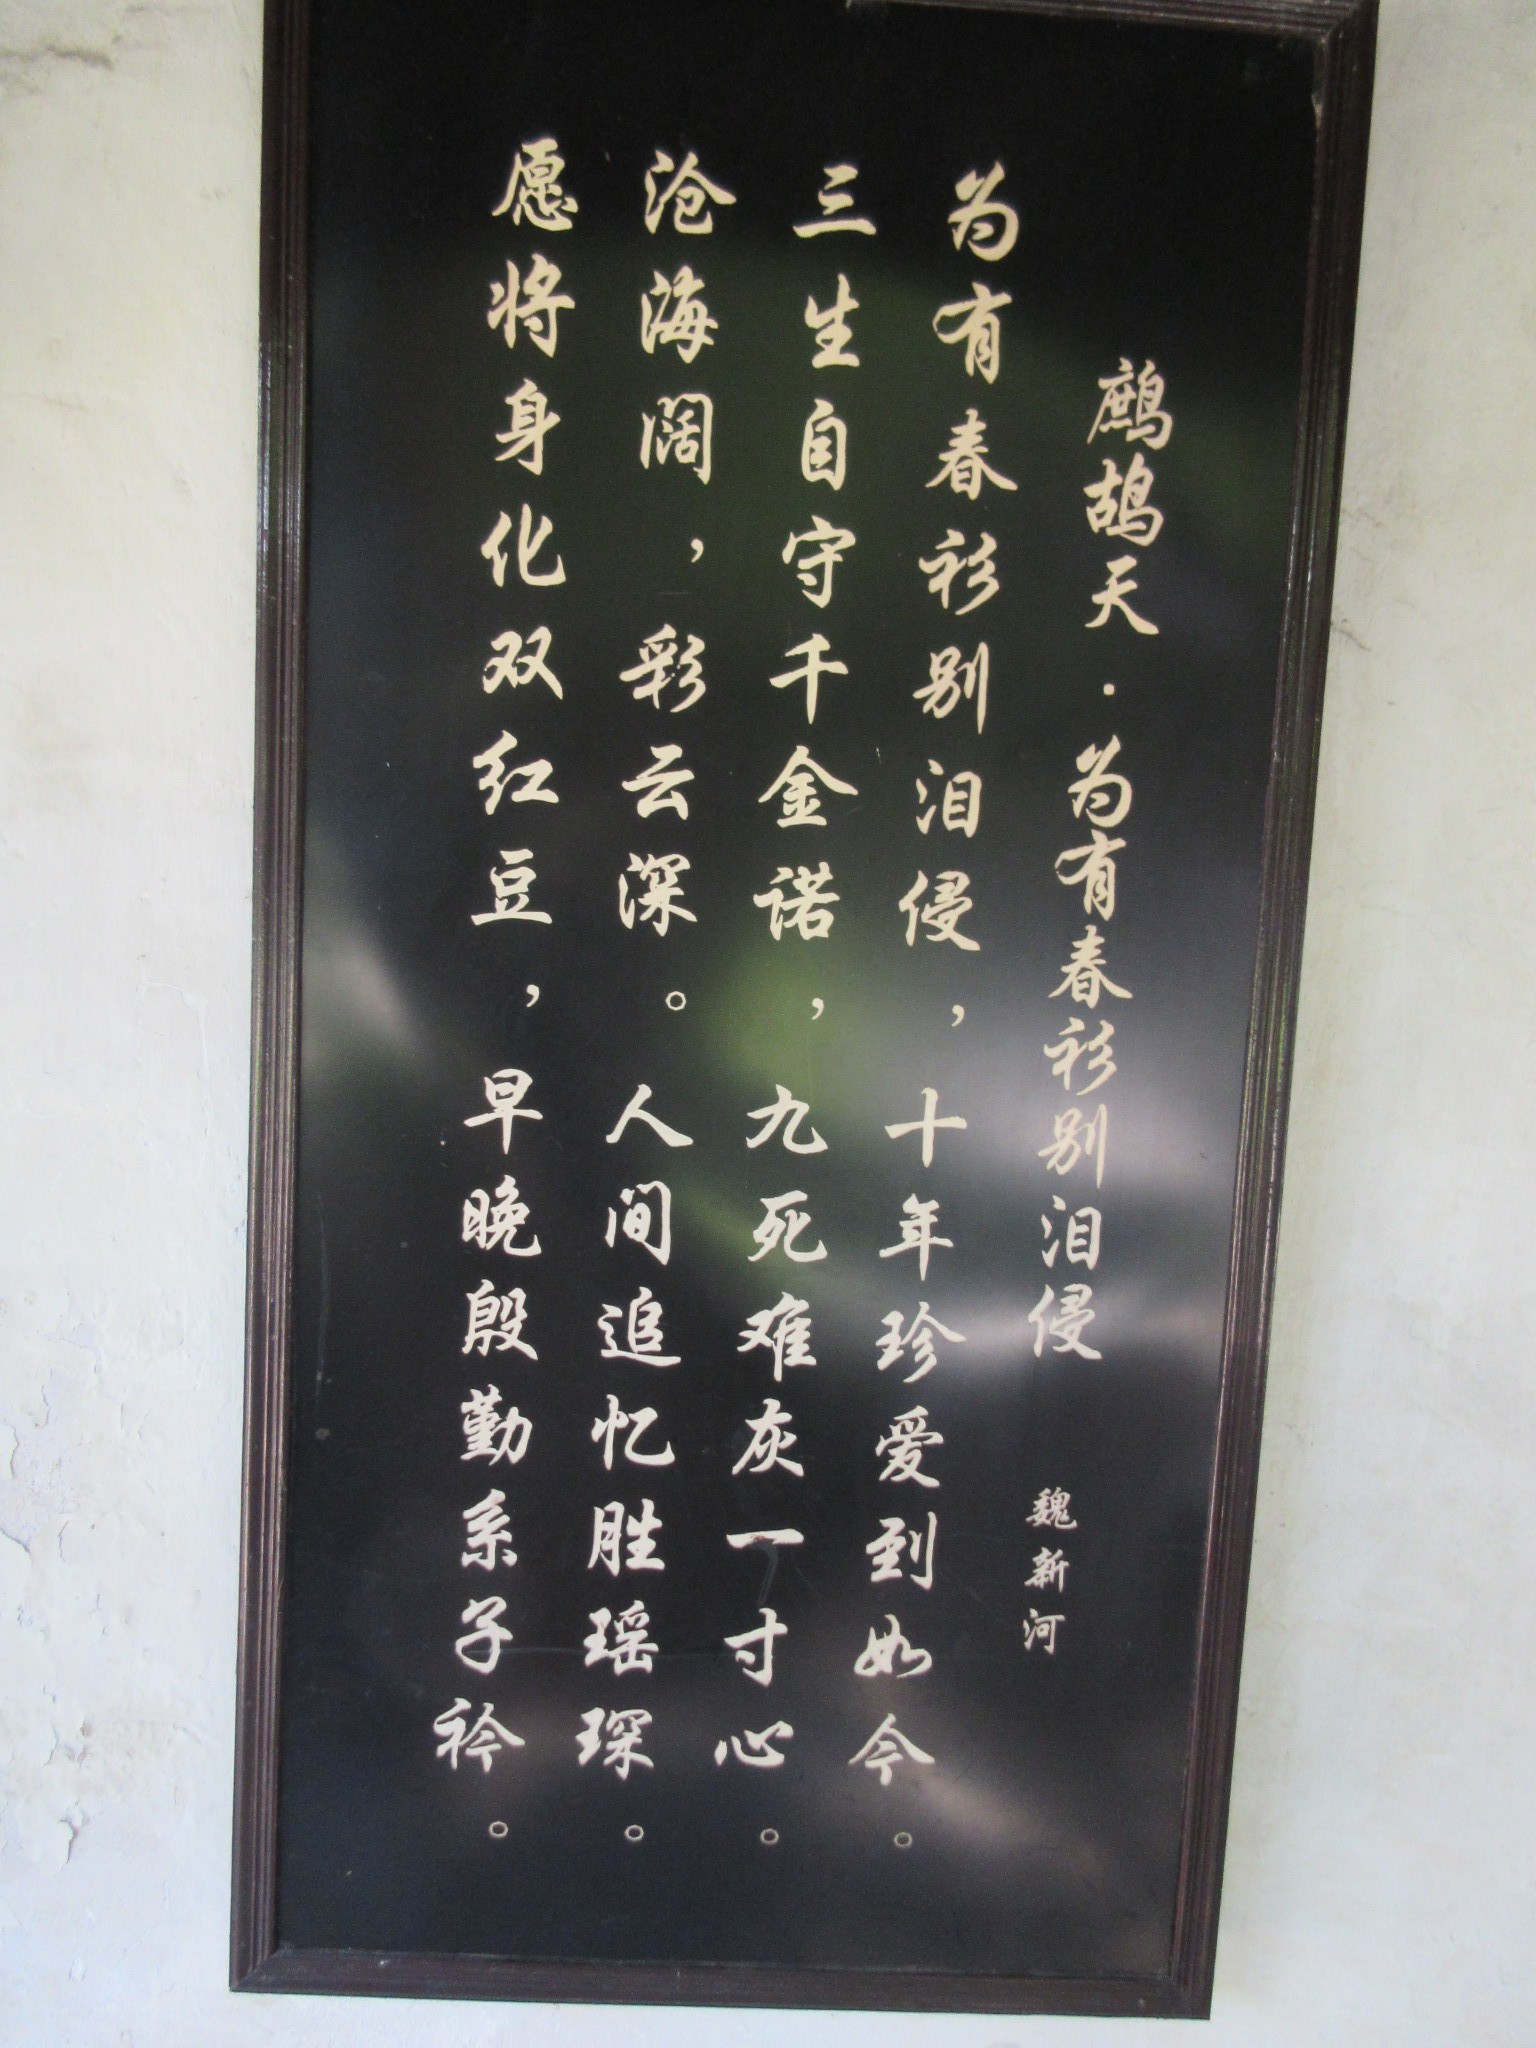 鹧鸪天·为有春衫别泪侵 魏新河
为有春衫别泪侵，十年珍爱到如今。
三生自守千金诺，九死难灰一寸心。
沧海阔，彩云深。人间追忆胜瑶琛。
愿将身化双红豆，早晚殷勤系子衿。